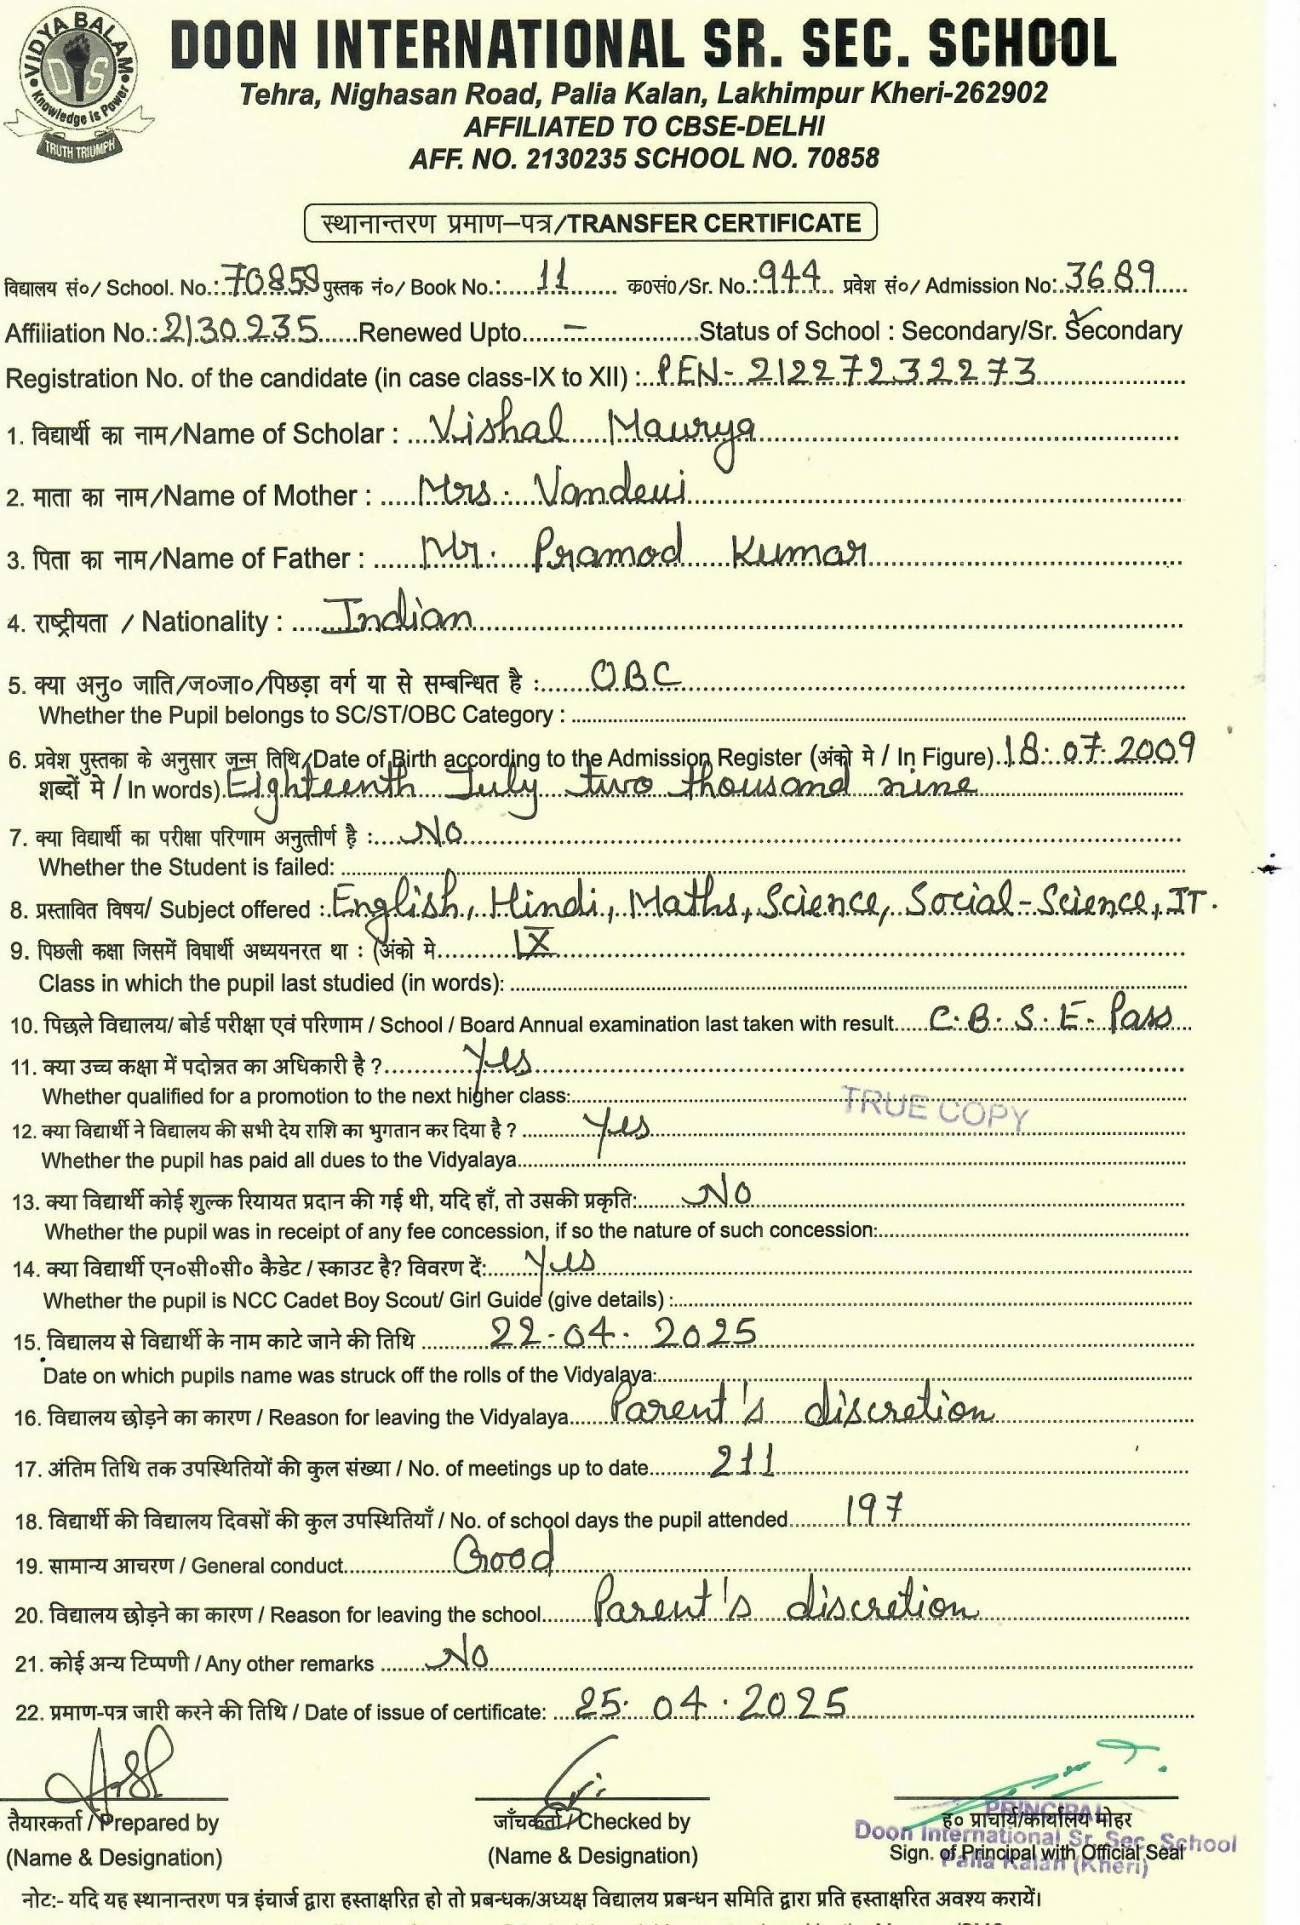 VIDYA BALAM
DIS
Knowledge is Power
TRUTH TRIUMPH
DOON INTERNATIONAL SR. SEC. SCHOOL
Tehra, Nighasan Road, Palia Kalan, Lakhimpur Kheri-262902
AFFILIATED TO CBSE-DELHI
AFF. NO. 2130235 SCHOOL NO. 70858
स्थानान्तरण प्रमाण–पत्र/TRANSFER CERTIFICATE
विद्यालय सं०/ School. No.:70858 पुस्तक नं०/ Book No.:......11...... क0सं0/Sr. No.:944... प्रवेश सं०/ Admission No:3689.....
Affiliation No.:2130235......Renewed Upto......–......Status of School : Secondary/Sr. Secondary
Registration No. of the candidate (in case class-IX to XII) :..PEN-21227232273......
1. विद्यार्थी का नाम/Name of Scholar : ...Vishal Maurya......
2. माता का नाम/Name of Mother : .....Mrs. Vandevi......
3. पिता का नाम/Name of Father : ......Mr. Pramod Kumar......
4. राष्ट्रीयता / Nationality : .....Indian......
5. क्या अनु० जाति/ज०जा०/पिछड़ा वर्ग या से सम्बन्धित है :......OBC......
Whether the Pupil belongs to SC/ST/OBC Category : ......
6. प्रवेश पुस्तका के अनुसार जन्म तिथि/Date of Birth according to the Admission Register (अंको मे / In Figure)..18.07.2009
शब्दों मे / In words).Eighteenth July two thousand nine......
7. क्या विद्यार्थी का परीक्षा परिणाम अनुत्तीर्ण है :....No......
Whether the Student is failed: ......
8. प्रस्तावित विषय/ Subject offered :.English, Hindi, Maths, Science, Social-Science, IT.
9. पिछली कक्षा जिसमें विघार्थी अध्ययनरत था : (अंको मे......IX......
Class in which the pupil last studied (in words): ......
10. पिछले विद्यालय/ बोर्ड परीक्षा एवं परिणाम / School / Board Annual examination last taken with result.....C.B.S.E-Pass...
11. क्या उच्च कक्षा में पदोन्नत का अधिकारी है ?......Yes......
Whether qualified for a promotion to the next higher class:......
TRUE COPY
12. क्या विद्यार्थी ने विद्यालय की सभी देय राशि का भुगतान कर दिया है ? ......Yes......
Whether the pupil has paid all dues to the Vidyalaya......
13. क्या विद्यार्थी कोई शुल्क रियायत प्रदान की गई थी, यदि हाँ, तो उसकी प्रकृति:......No......
Whether the pupil was in receipt of any fee concession, if so the nature of such concession:......
14. क्या विद्यार्थी एन०सी०सी० कैडेट / स्काउट है? विवरण दें:......Yes......
Whether the pupil is NCC Cadet Boy Scout/ Girl Guide (give details) :......
15. विद्यालय से विद्यार्थी के नाम काटे जाने की तिथि ......22.04.2025......
Date on which pupils name was struck off the rolls of the Vidyalaya:......
16. विद्यालय छोड़ने का कारण / Reason for leaving the Vidyalaya......Parent's discretion......
17. अंतिम तिथि तक उपस्थितियों की कुल संख्या / No. of meetings up to date......211......
18. विद्यार्थी की विद्यालय दिवसों की कुल उपस्थितियाँ / No. of school days the pupil attended......197......
19. सामान्य आचरण / General conduct......Good......
20. विद्यालय छोड़ने का कारण / Reason for leaving the school......Parent's discretion......
21. कोई अन्य टिप्पणी / Any other remarks ......No......
22. प्रमाण-पत्र जारी करने की तिथि / Date of issue of certificate: ....25.04.2025......
तैयारकर्ता / Prepared by
(Name & Designation)
जाँचकर्ता / Checked by
(Name & Designation)
ह० प्राचार्य/कार्यालय मोहर
Sign. of Principal with Official Seal
PRINCIPAL
Doon International Sr. Sec. School
Palia Kalan (Kheri)
नोट:- यदि यह स्थानान्तरण पत्र इंचार्ज द्वारा हस्ताक्षरित हो तो प्रबन्धक/अध्यक्ष विद्यालय प्रबन्धन समिति द्वारा प्रति हस्ताक्षरित अवश्य करायें।